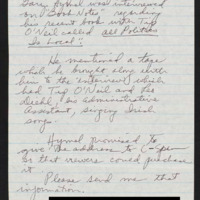 Gary Hymel was interviewed
on "Book Notes" regarding
his recent book with Tip
O'Neil called All Politics
Is Local.
He mentioned a tape
which he brought along with
him to the interview, which
had Tip O'Neil and
his administrative
Assistant, singing Irish
songs.
Hymel promised to
give the address to C-Span
so that viewers could purchase
it.
Please send me that
information.